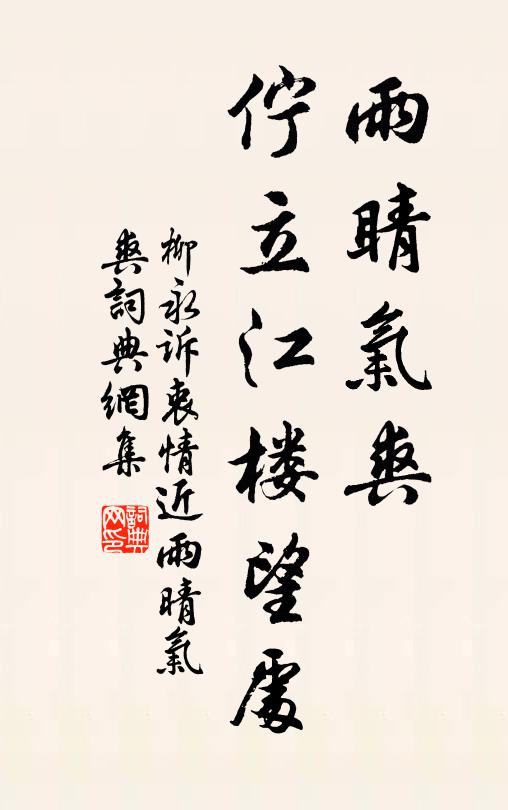 雨晴氣爽
佇立江楼望處
柳永訴衷情近雨晴氣
爽詞典網集
詞典
网印